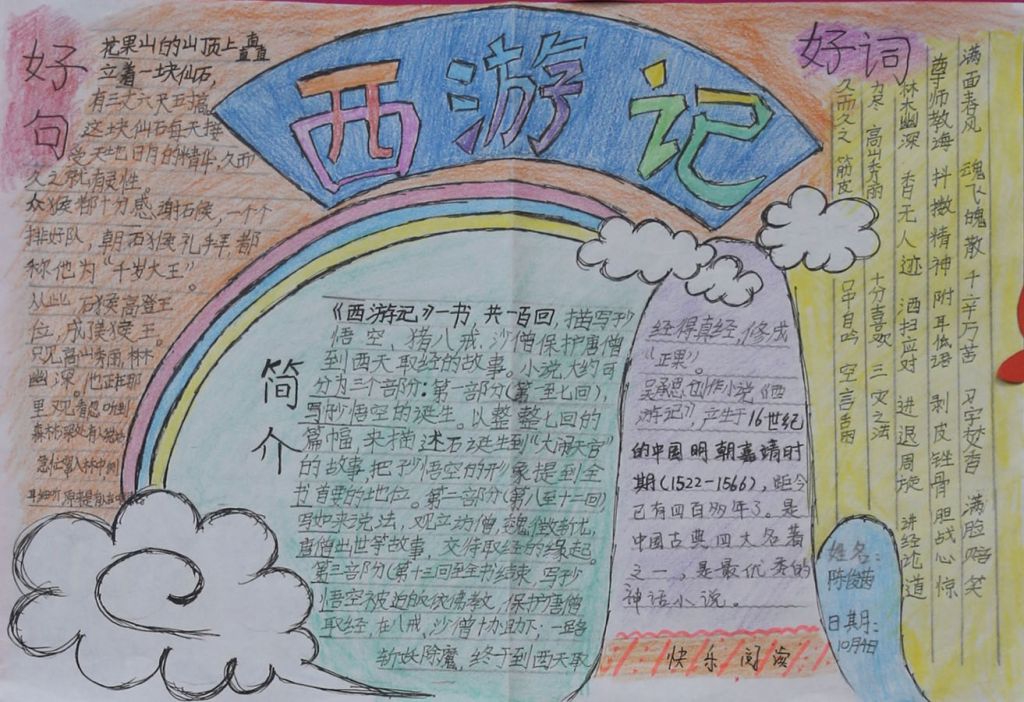 西游记
好句
花果山的山顶上直直
立着一块仙石,
有三丈六尺五
这块仙石每天接
受天地日月的精华,久而
久之就有灵性。
众猴都十分感谢石猴,一个个
排好队,朝石猴礼拜,都
称他为“千岁大王”。
从此,石猴高登王
位,成猴王。
只见高山秀丽,林木
幽深。他正在那
里观看忽听到
森林深处有人
急忙
简介
《西游记》一书,共一百回,描写孙
悟空、猪八戒,沙僧保护唐僧
到西天取经的故事。小说大约可
分为三个部分:第一部分(第一至七回),
写孙悟空的诞生。以整整七回的
篇幅,来描述石诞生到“大闹天宫”
的故事,把孙悟空的形象提到全
书首要的地位。第二部分(第八至十二回)
写如来说法,观立访僧,魂
唐僧出世等故事,交待取经的缘起。
第三部分(第十三回至全书结束,写孙
悟空被迫皈依佛教,保护唐僧
取经,在八戒,沙僧协助下,一路
斩妖除魔,终于到西天取
经得真经,修成
“正果”。
吴承恩创作小说《西
游记》,产生于16世纪
的中国明朝嘉靖时
期(1522-1566),距今
已有四百多年了。是
中国古典四大名著
之一,是最优秀的
神话小说。
快乐阅读
好词
满面春风 魂飞魄散 千辛万苦 习字焚香 满脸赔笑
尊师教诲 抖擞精神 附耳低语 剥皮锉骨 胆战心惊
林木幽深 杳无人迹 洒扫应对 进退周旋 讲经论道
力尽 高山秀丽 十分喜欢 三灾之法
久而久之 筋皮 口中自吟 空言舌雨
姓名:
陈俊茜
日期:
10月4日